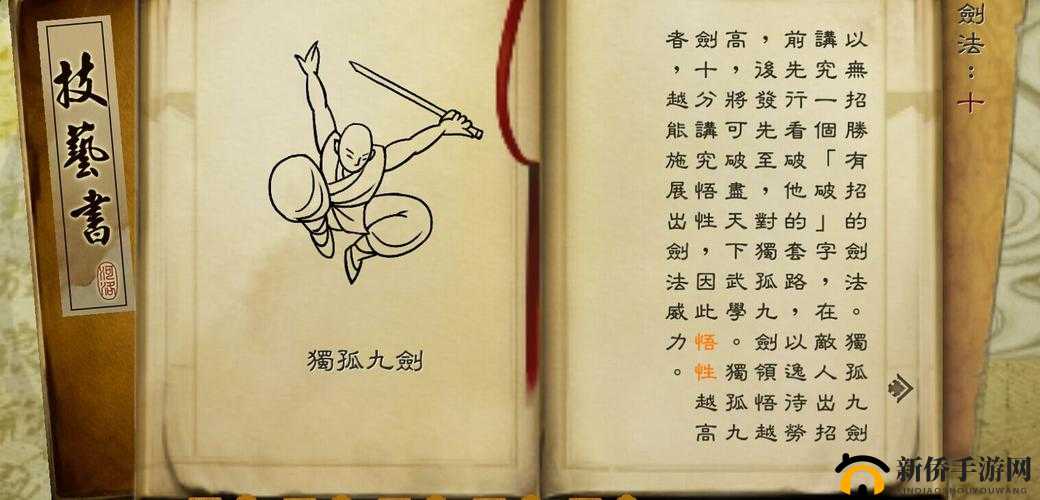 劍法：十
以無招勝有招的劍法。獨孤九劍
講究一個「破」字，在敵人出招
前先行看破他的套路，以逸待勞
，後發先至，對獨孤九劍領悟越
高，將可破盡天下武學。獨孤九
劍十分講究悟性，因此悟性越高
者，越能施展出劍法威力。
獨孤九劍
技藝書
河洛
新侨手游网
XINQIAOSHOUYOUWANG